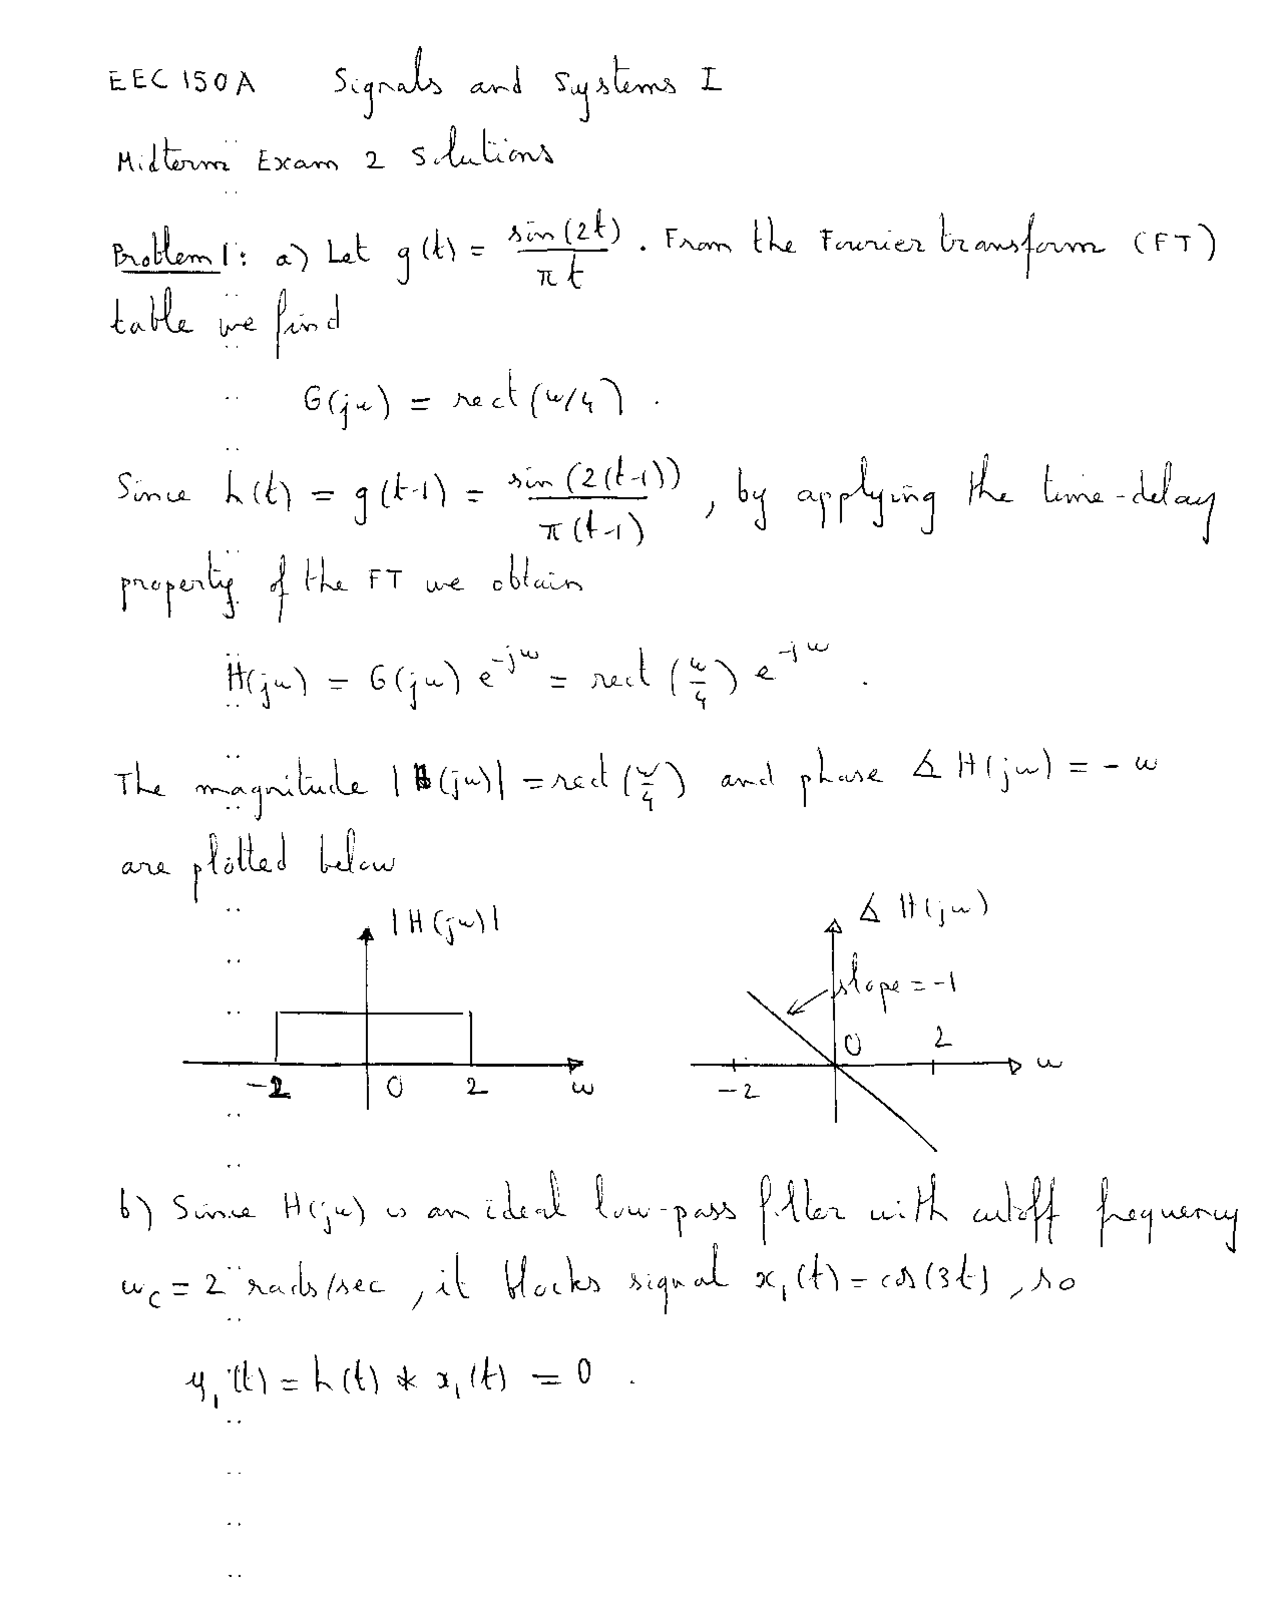 EEC 150A Signals and Systems I
Midterm Exam 2 Solutions
Problem 1: a) Let g(t) = sin(2t)/πt . From the Fourier transform (FT)
table we find
G(jω) = rect(ω/4) .
Since h(t) = g(t-1) = sin(2(t-1))/π(t-1) , by applying the time-delay
property of the FT we obtain
H(jω) = G(jω) e^-jω = rect(ω/4) e^-jω .
The magnitude |H(jω)| = rect(ω/4) and phase ∡ H(jω) = - ω
are plotted below
|H(jω)|
-2 0 2 ω
∡ H(jω)
slope = -1
-2 0 2 ω
b) Since H(jω) is an ideal low-pass filter with cutoff frequency
ω_c = 2 rads/sec , it blocks signal x₁(t) = cos(3t) , so
y₁(t) = h(t) * x₁(t) = 0 .